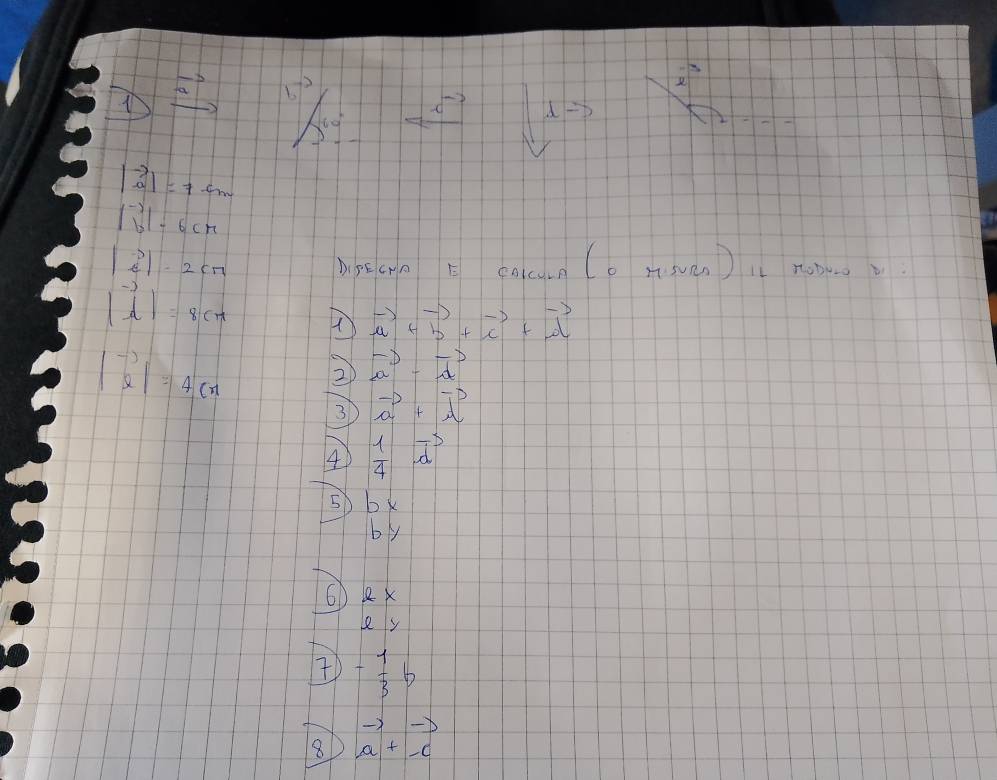 1) a→ b→ 60° c→ d→ e→
|a→| = 7 cm
|b→| = 6 cm
|c→| = 2 cm
|d→| = 8 cm
|e→| = 4 cm
DISEGNA E CALCOLA (O MISURA) IL MODULO DI:
1) a→ + b→ + c→ + d→
2) a→ - d→
3) a→ + d→
4) 1/4 d→
5) bx
by
6) ex
ey
7) - 1/3 b
8) a→ + -c→